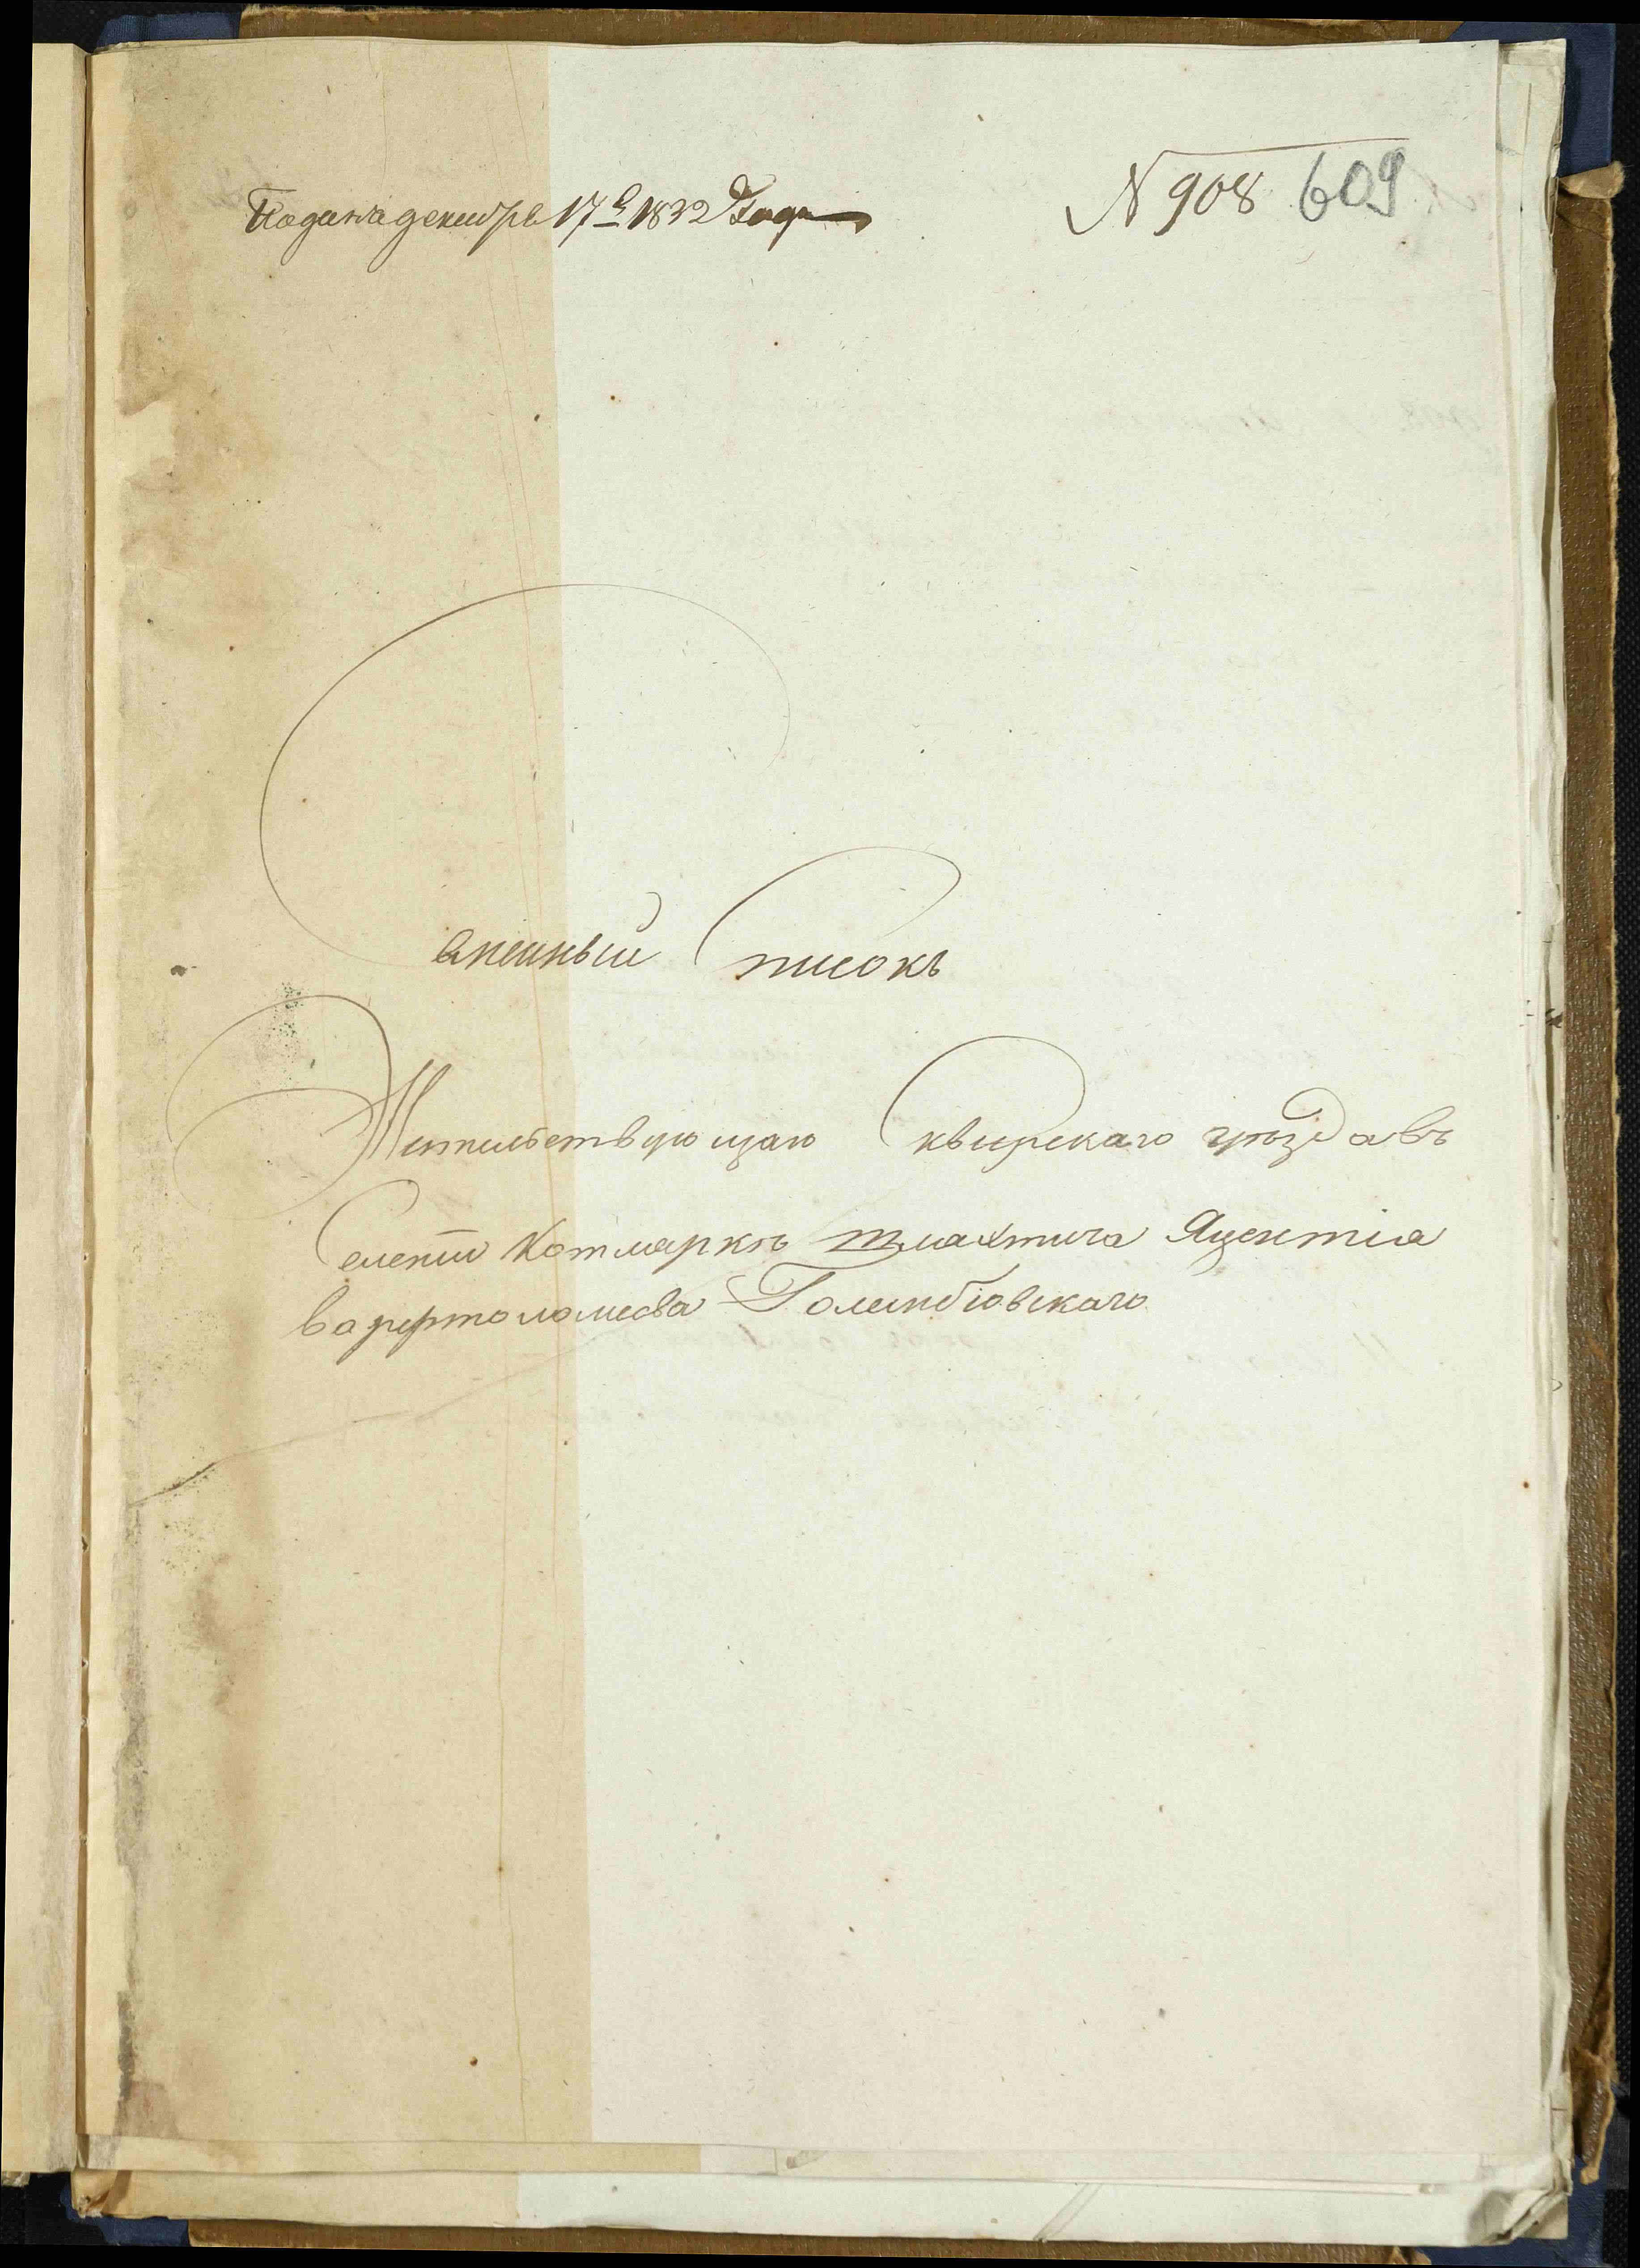 Подана декабря 17г 1832 Года
N 908 609
Сименный Список
Жительствующаго Сквирскаго уѣзда въ
Селенiи Котлярке шляхтича Яцентiа
Варфтоломеова Голембiовскаго